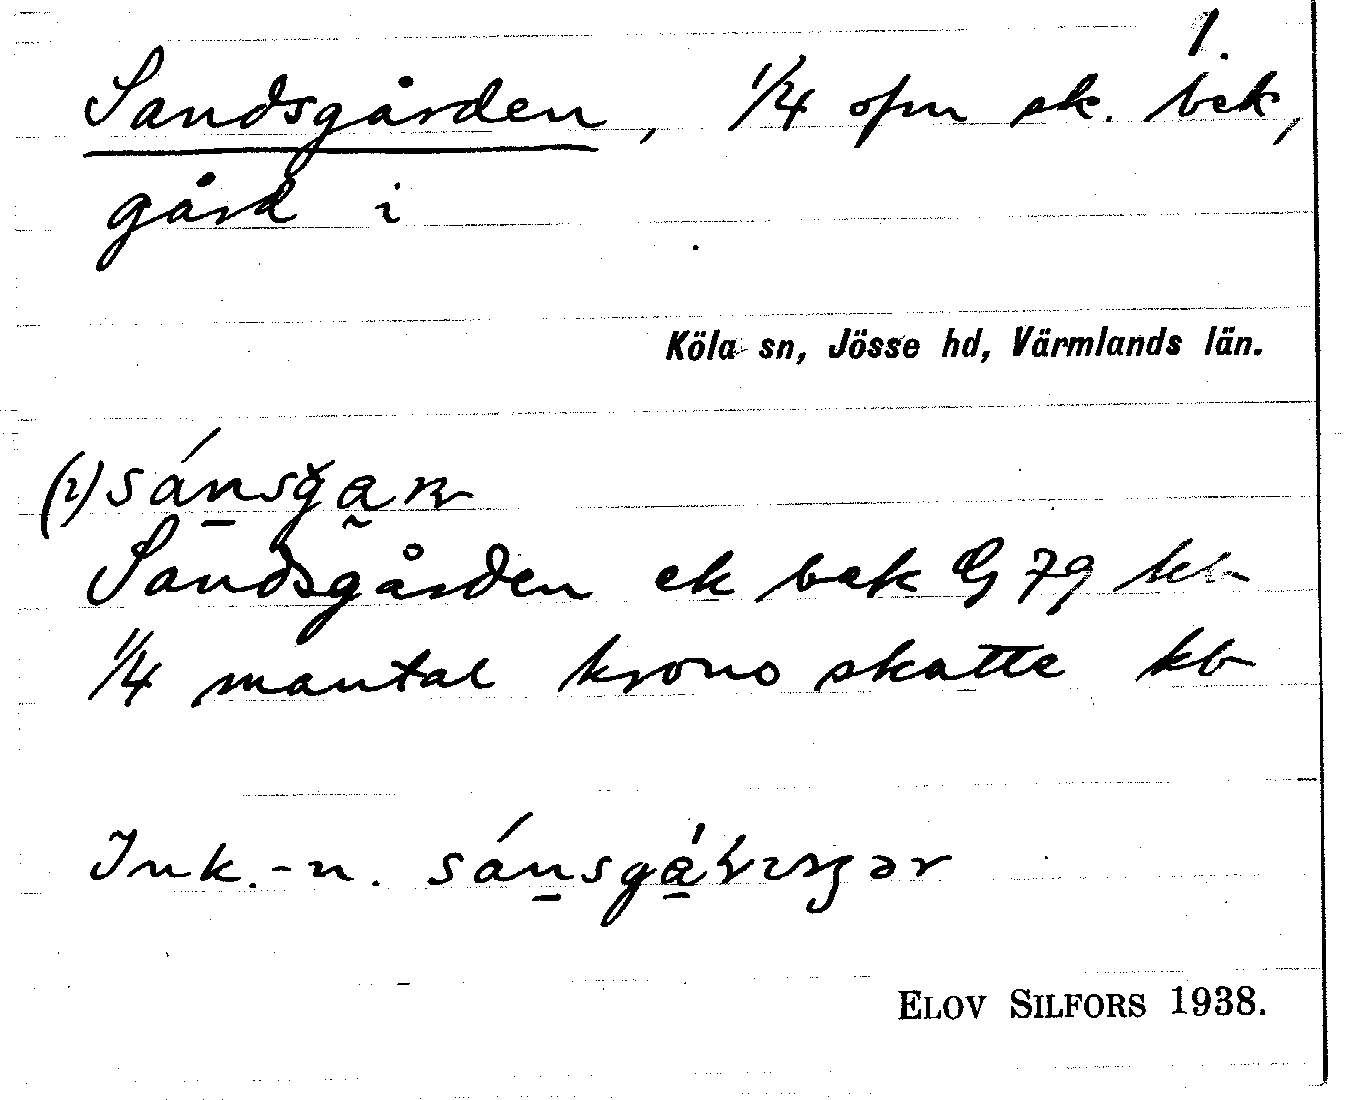 1.
Sandsgården, 1/4 ofm sk. bek,
gård i
Köla sn, Jösse hd, Värmlands län.
(i) sánsga
Sandsgården ek bek G 79 kb
1/4 mantal krono skatte kb
Ink.-n.
ELOV SILFORS 1938.